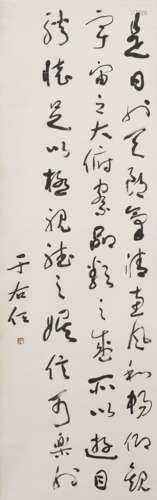 是日也天朗氣清惠風和暢仰觀
宇宙之大俯察品類之盛所以遊目
騁懷足以極視聽之娛信可樂也
于右任